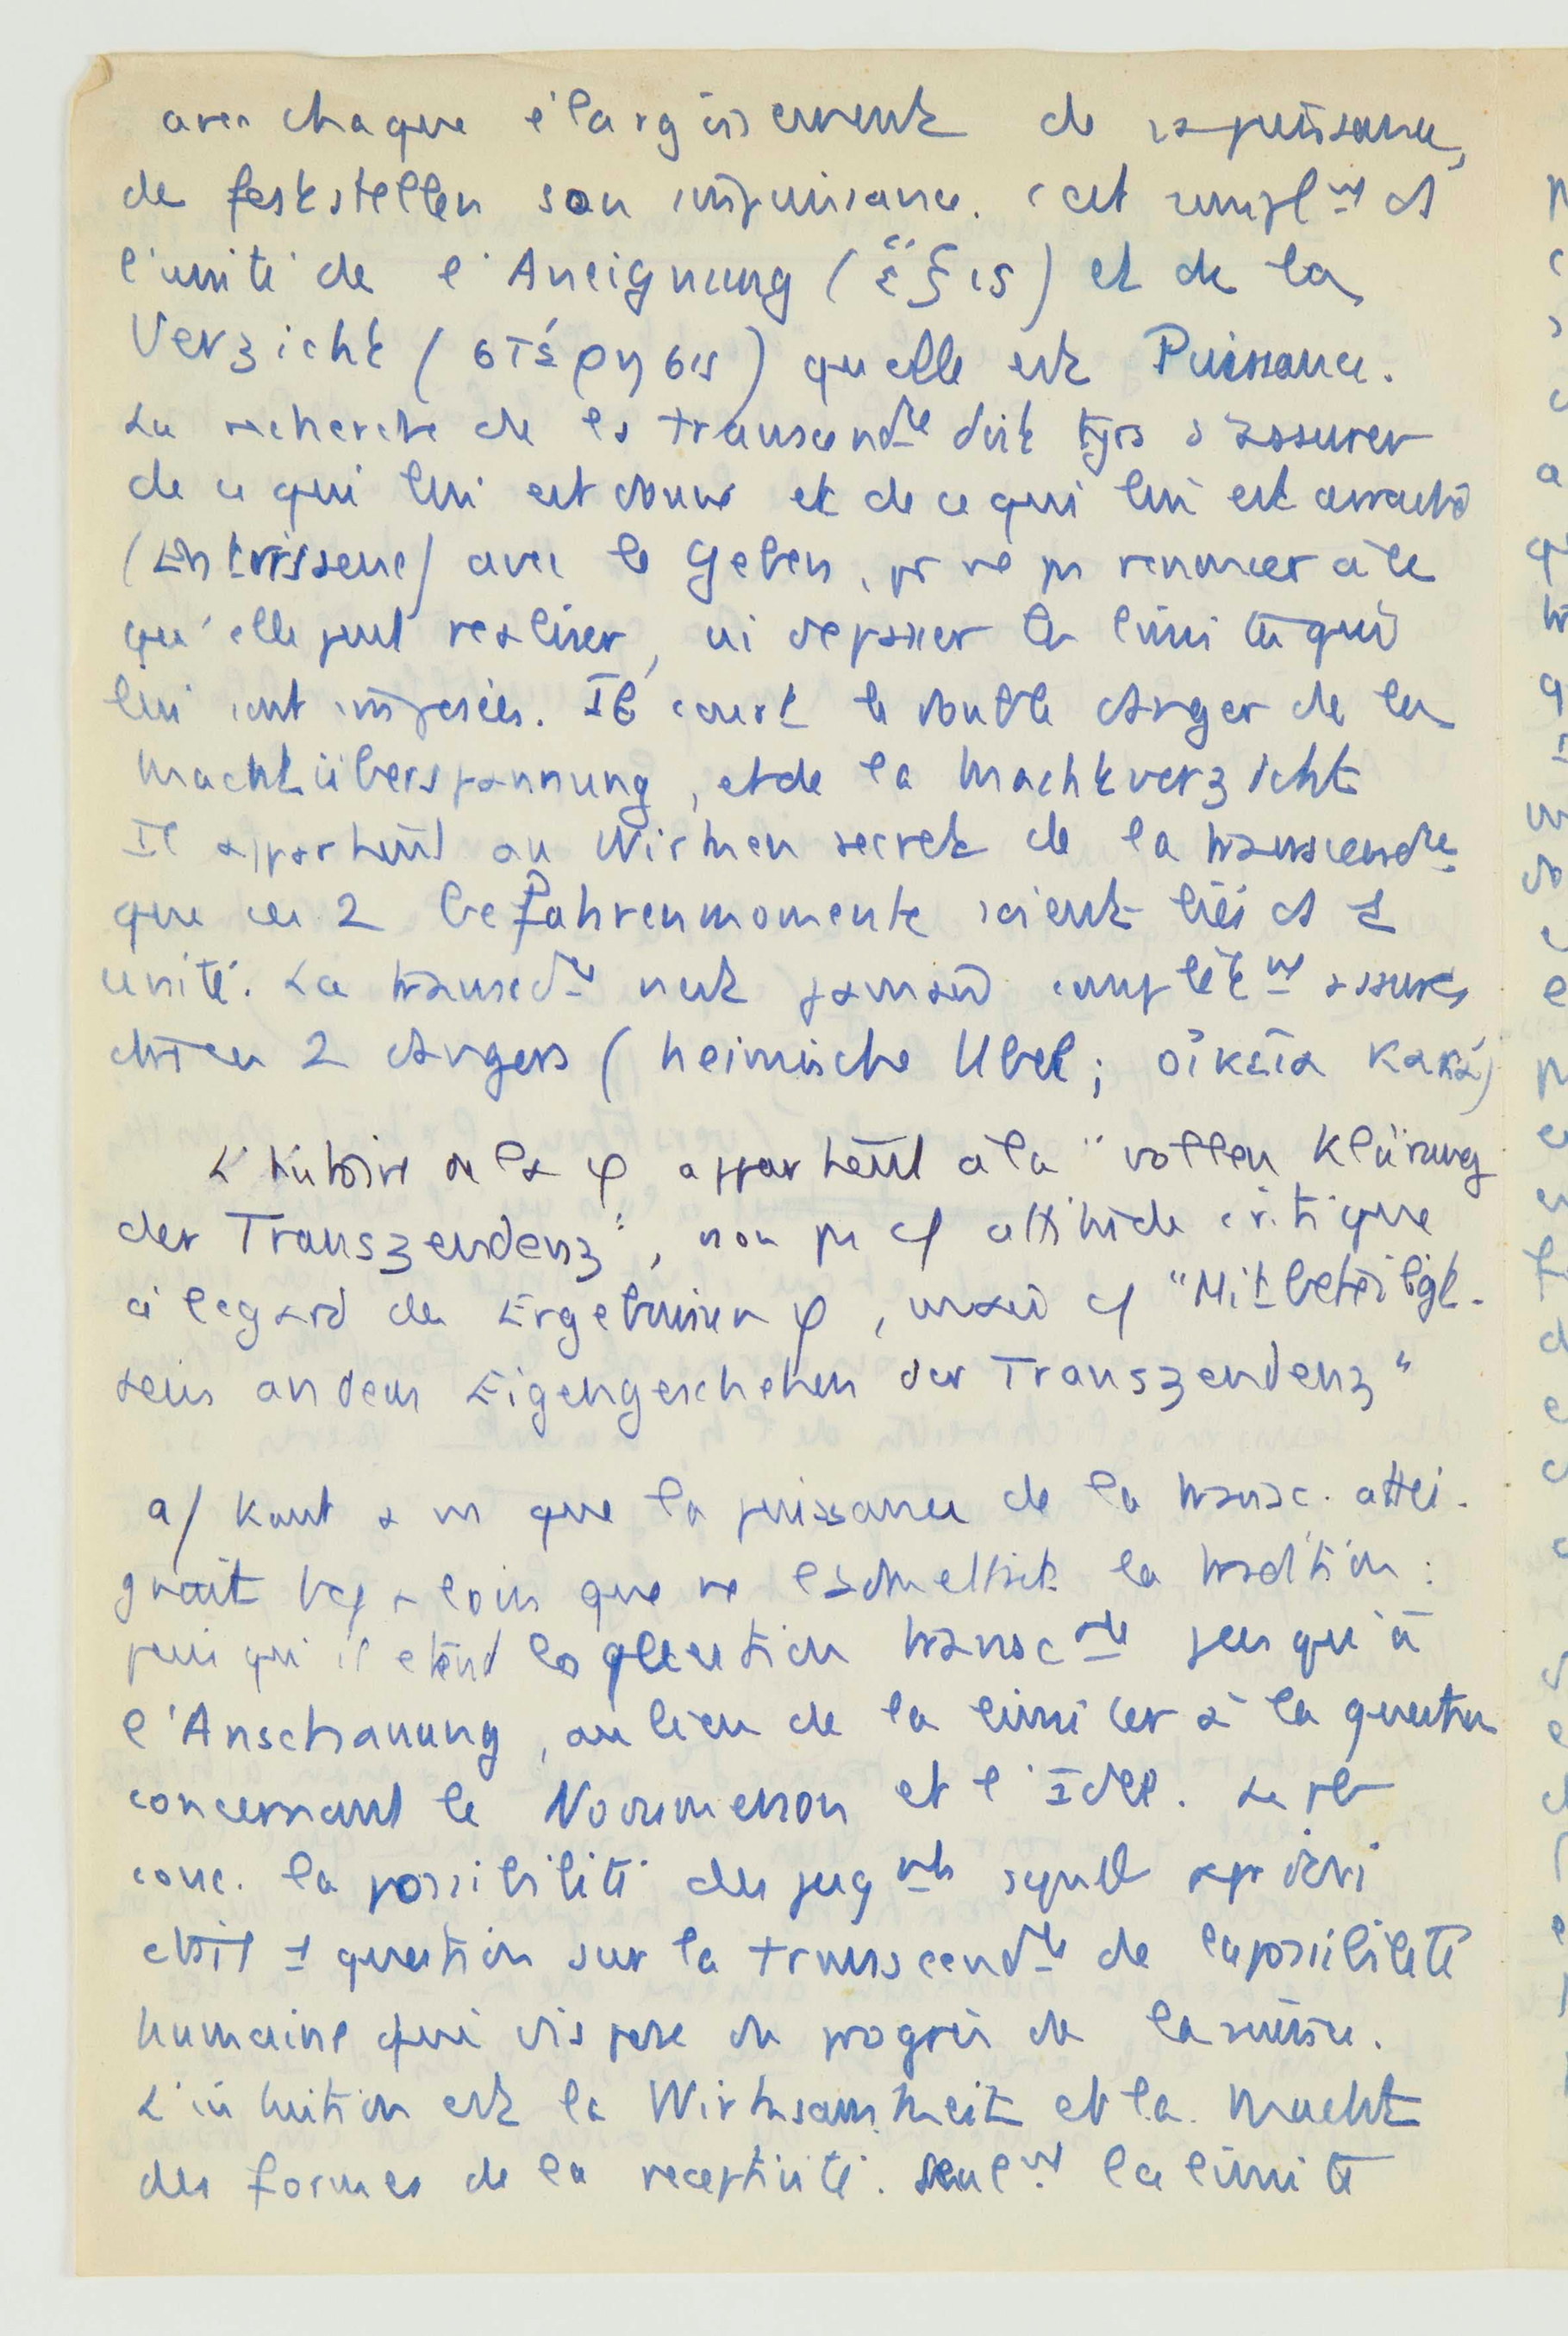 avec chaque élargissement de sa puissance,
de feststellen son impuissance. C'est simplmt ds
l'unité de l'Aneignung (ἕξις) et de la
Verzicht (στέρησις) qu'elle est Puissance.
La recherche de la transcendce doit tjrs s'assurer
de ce qui lui est donné et de ce qui lui est arraché
(Entrissene) avec le Geben, pr ne pas renoncer à ce
qu'elle peut réaliser, ni dépasser les limites qui
lui sont imposées. Il court le double danger de la
Machtüberspannung, et de la Machtverzicht
Il appartient au Wirken secret de la transcendce
que ces 2 Gefahrenmomente soient liés ds 1
unité. La transcdce n'est jamais complètmt assurée
ctre ces 2 dangers (heimische Übel; οἰκεῖα κακά)
L'histoire de la φ appartient à la "vollen Klärung
der Transzendenz", non pas c/ attitude critique
à l'égard des Ergebnissen φ, mais c/ "Mitbeteiligt-
seins an dem Eigengeschehen der Transzendenz"
a/ Kant a vu que la puissance de la transc. attei-
gnait bcp + loin que ne l'admettait la tradition :
puisqu'il étend la question transcdle jusqu'à
l'Anschauung, au lieu de la limiter à la question
concernant le Noumenon et l'Idée. Le pb
conc. la possibilité des jugmts synth a priori
était 1 question sur la transcendce de la possibilité
humaine qui dispose du progrès de la science.
L'intuition est la Wirksamkeit et la Macht
des formes de la réceptivité. Seulmt la limite